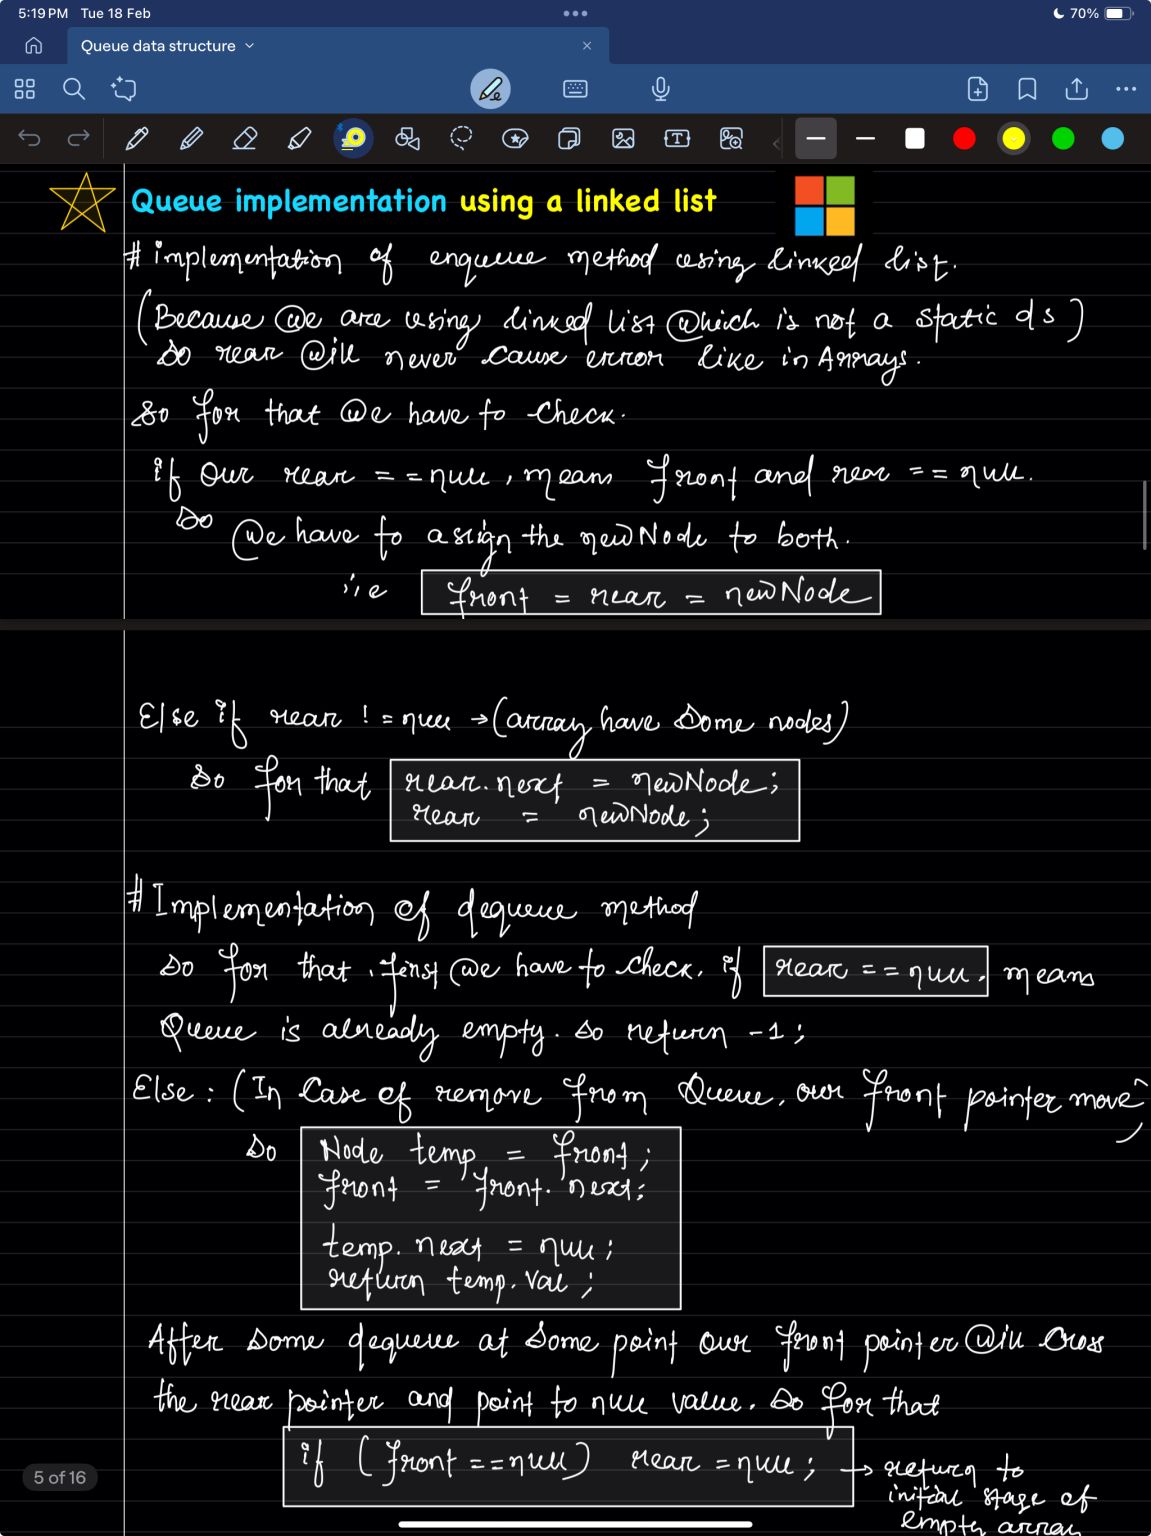 5:19 PM Tue 18 Feb
70%
Queue data structure
Queue implementation using a linked list
# implementation of enqueue method using linked list.
(Because we are using linked list which is not a static ds)
so rear will never cause error like in Arrays.
So for that we have to check.
if our rear == null, means front and rear == null.
So we have to assign the newNode to both.
i.e front = rear = newNode
Else if rear != null → (array have some nodes)
So for that rear.next = newNode;
rear = newNode;
# Implementation of dequeue method
So for that, first we have to check, if rear == null. means
Queue is already empty. so return -1;
Else: (In case of remove from Queue, our front pointer move)
So Node temp = front;
front = front.next;
temp.next = null;
return temp.val;
After some dequeue at some point our front pointer will cross
the rear pointer and point to null value. So for that
if (front == null) rear = null; → return to
initial stage of
empty array
5 of 16